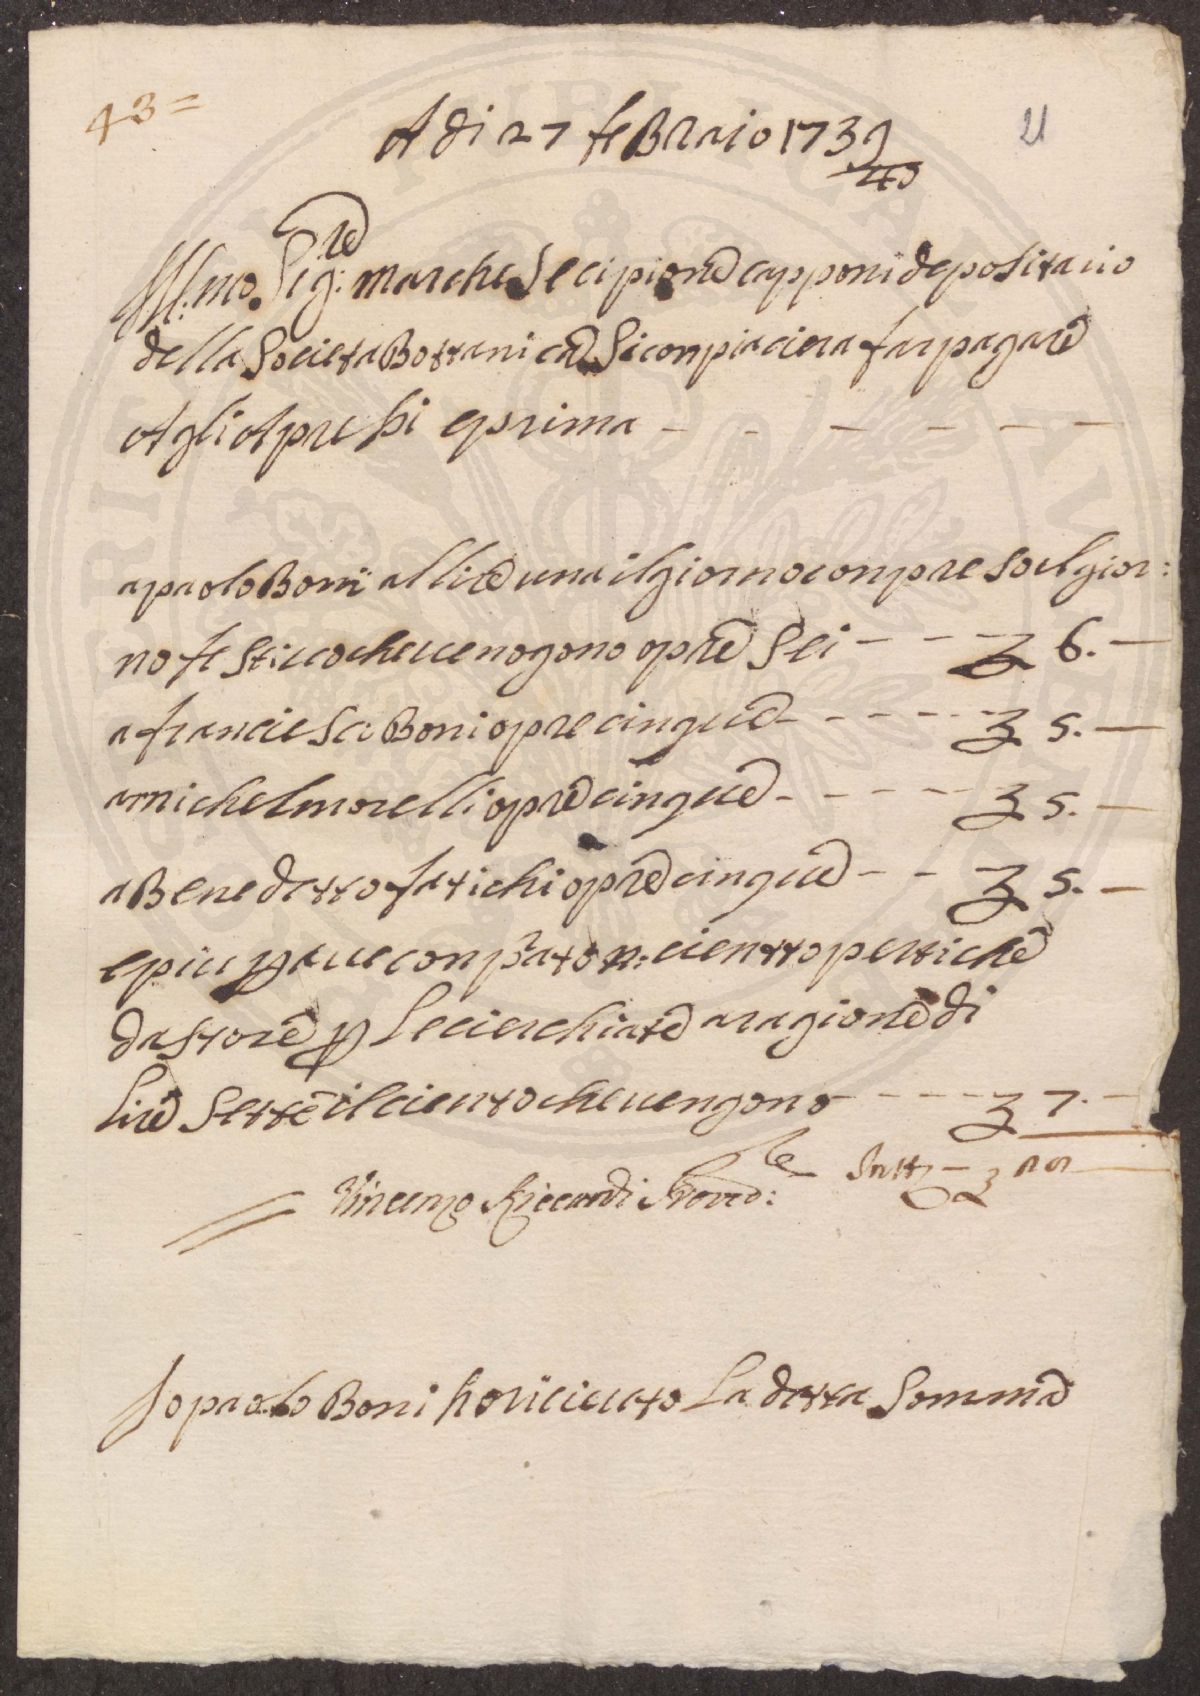 43=
A di 27 feBraio 1739/40
21
Ill:mo. Sig:re marchese scipione capponi depositario
della Societta Bottanica Si conpiaciera far pagare
A gli Apresi e prima - - - - - -
a paolo Boni a llire una il giorno conpreso el gior:
no festiuo che uenogono opre Sei - - - £ 6. -
a franciesci Boni opre cinque - - - - - £ 5. -
a michel morelli opre cinque - - - - - £ 5. -
a Benedetto fatichi opre cinque - - - £ 5. -
e piu per aue conprato n: cientto pertiche
da store per Le cierchiate a ragione di
Lire Sette il ciento che uengono - - - - £ 7. -
In tt° - £ 28
Vincenzo Riccardi Proved:re
Io paolo Boni ho riceuto La detta Somma